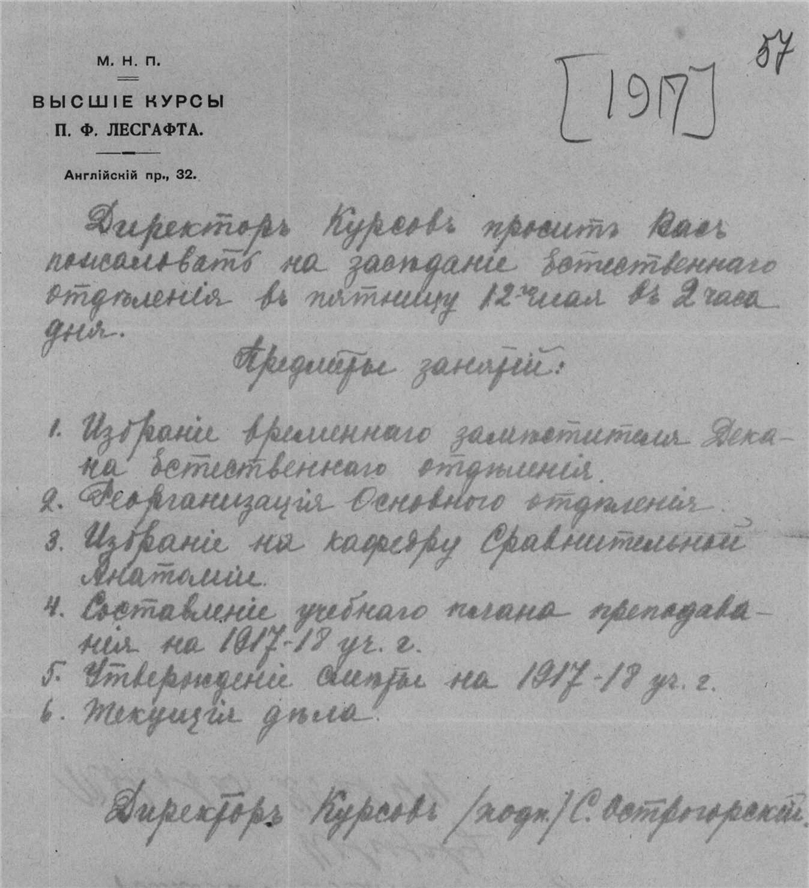 57
[1917]
М. Н. П.
ВЫСШІЕ КУРСЫ
П. Ф. ЛЕСГАФТА.
Англійскій пр., 32.
Директоръ Курсовъ проситъ Васъ
пожаловать на засѣданіе Естественнаго
отдѣленія въ пятницу 12-го мая въ 2 часа
дня.
Предметы занятій:
1. Избраніе временнаго заместителя Дека-
на Естественнаго отдѣленія.
2. Реорганизація Основного отдѣленія.
3. Избраніе на кафедру Сравнительной
Анатоміи.
4. Составленіе учебнаго плана преподава-
нія на 1917-18 уч. г.
5. Утвержденіе смѣты на 1917-18 уч. г.
6. Текущія дѣла.
Директоръ Курсовъ /подп./ С. Острогорскій.